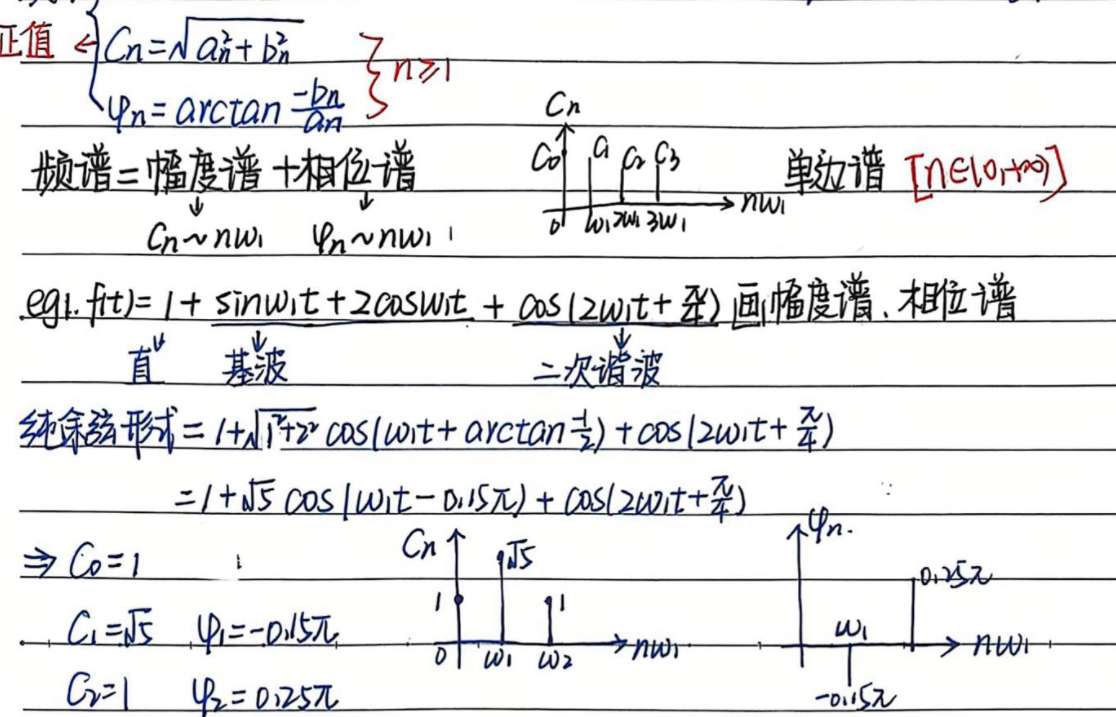 正值 ← { Cn=√(an²+bn²)
φn=arctan -bn/an } n≥1
频谱=幅度谱+相位谱
Cn~nω₁ φn~nω₁
Cn
C₀ C₁ C₂ C₃
0 ω₁ 2ω₁ 3ω₁ nω₁
单边谱 [n∈(0,+∞)]
eg1. f(t)=1+sinω₁t+2cosω₁t+cos(2ω₁t+π/4) 画幅度谱、相位谱
直 基波 二次谐波
纯余弦形式=1+√(1²+2²) cos(ω₁t+arctan -1/2)+cos(2ω₁t+π/4)
=1+√5 cos(ω₁t-0.15π)+cos(2ω₁t+π/4)
⇒ C₀=1
C₁=√5 φ₁=-0.15π
C₂=1 φ₂=0.25π
Cn
√5
1 1
0 ω₁ ω₂ nω₁
φn
0.25π
ω₁ nω₁
-0.15π